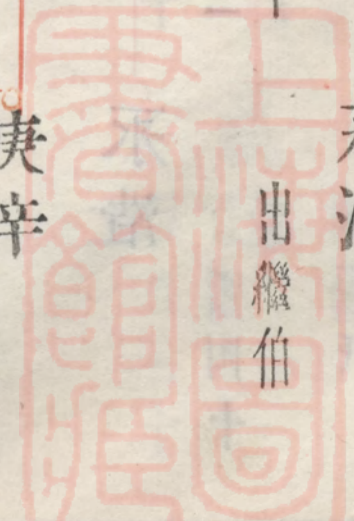 出繼伯
庚辛
上海圖
書館藏